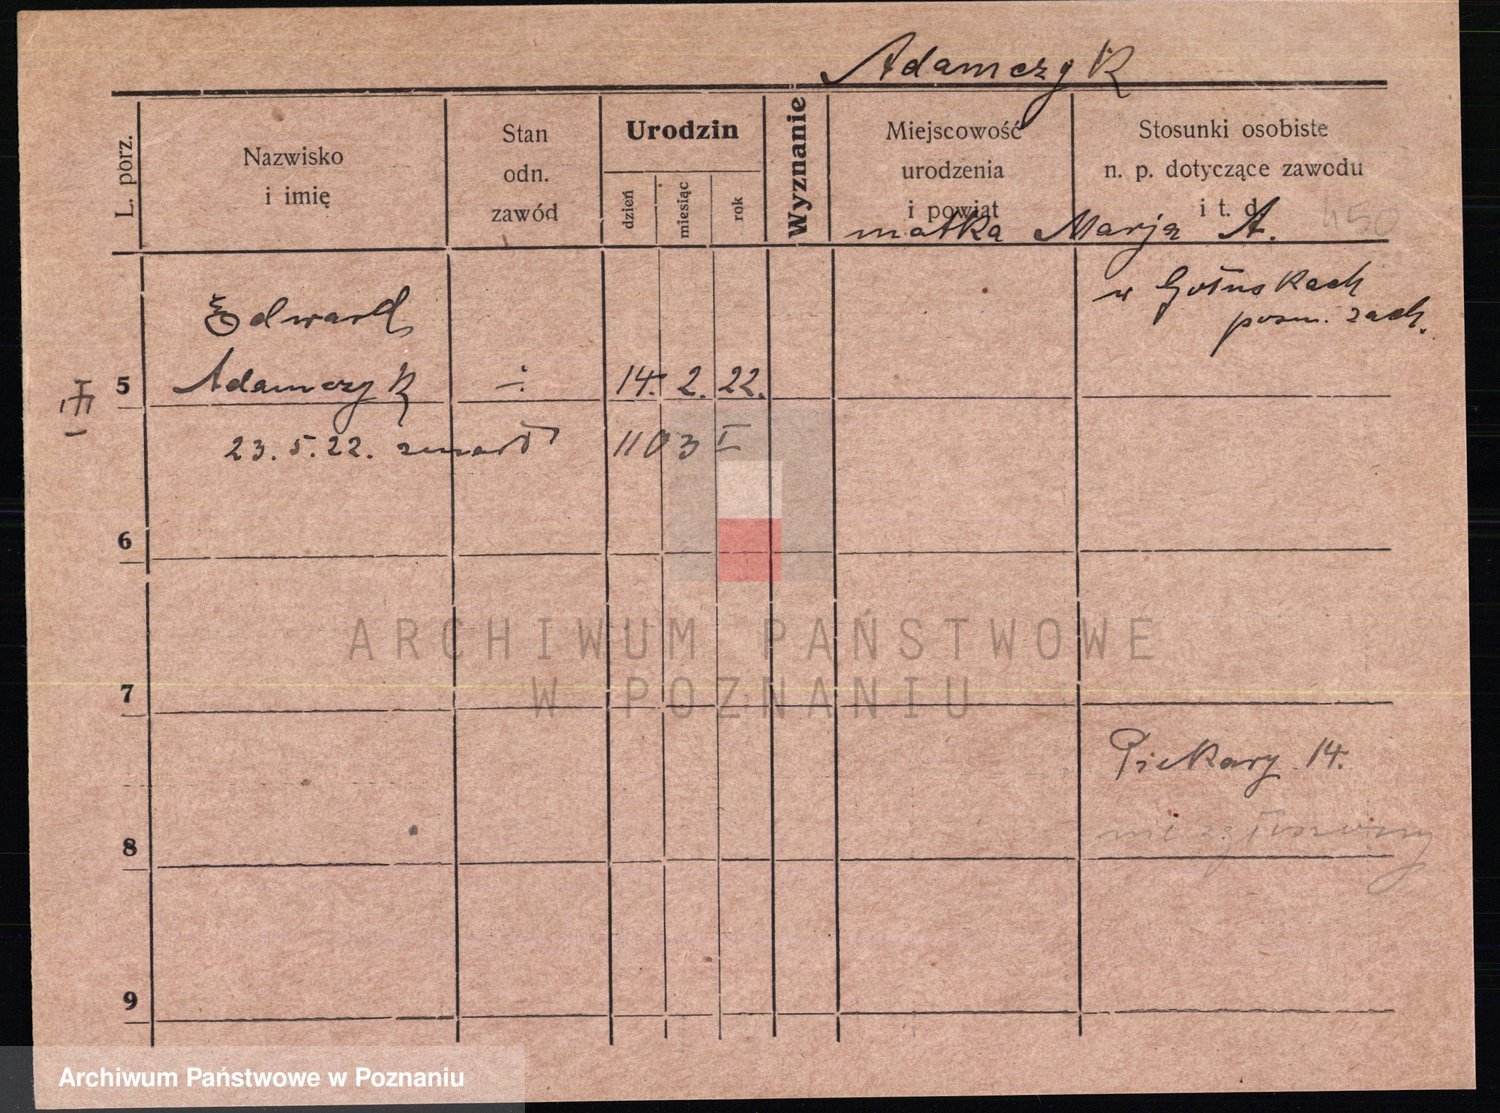 Adamczyk
L. porz.
Nazwisko
i imię
Stan
odn.
zawód
Urodzin
dzień
miesiąc
rok
Wyznanie
Miejscowość
urodzenia
i powiat
Stosunki osobiste
n. p. dotyczące zawodu
i t. d.
matka Marja A.
450
w Gołuskach
pozn. zach.
Edward
5 Adamczyk ÷ 14. 2. 22.
23. 5. 22. zmarł 1103 I
6
ARCHIWUM PAŃSTWOWE
W POZNANIU
7
Piekary 14.
8
9
Archiwum Państwowe w Poznaniu